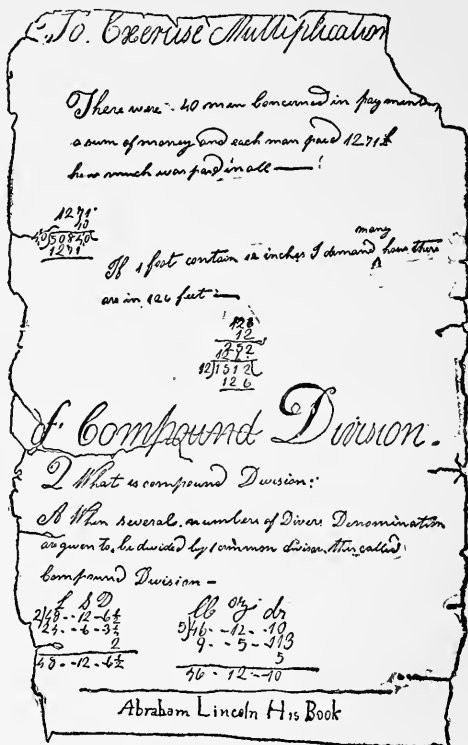 To Exercise Multiplication
There were 40 men Concerned in payment
a sum of money and each man paid 1271£
how much was paid in all —
1271
40
40)50840(
1271
many
If 1 foot contain 12 inches I demand how there
are in 126 feet
126
12
252
12
12)1512(
126
of Compound Division.
Q What is compound Division:
A When several numbers of Divers Denomination
are given to be divided by 1 common divisor this called
Compound Division —
£ S D
2)48--12-6½
24--6-3¼
2
48--12-6½
lb oz dr
5)46--12--10
9--5--113
5
46--12--10
Abraham Lincoln His Book